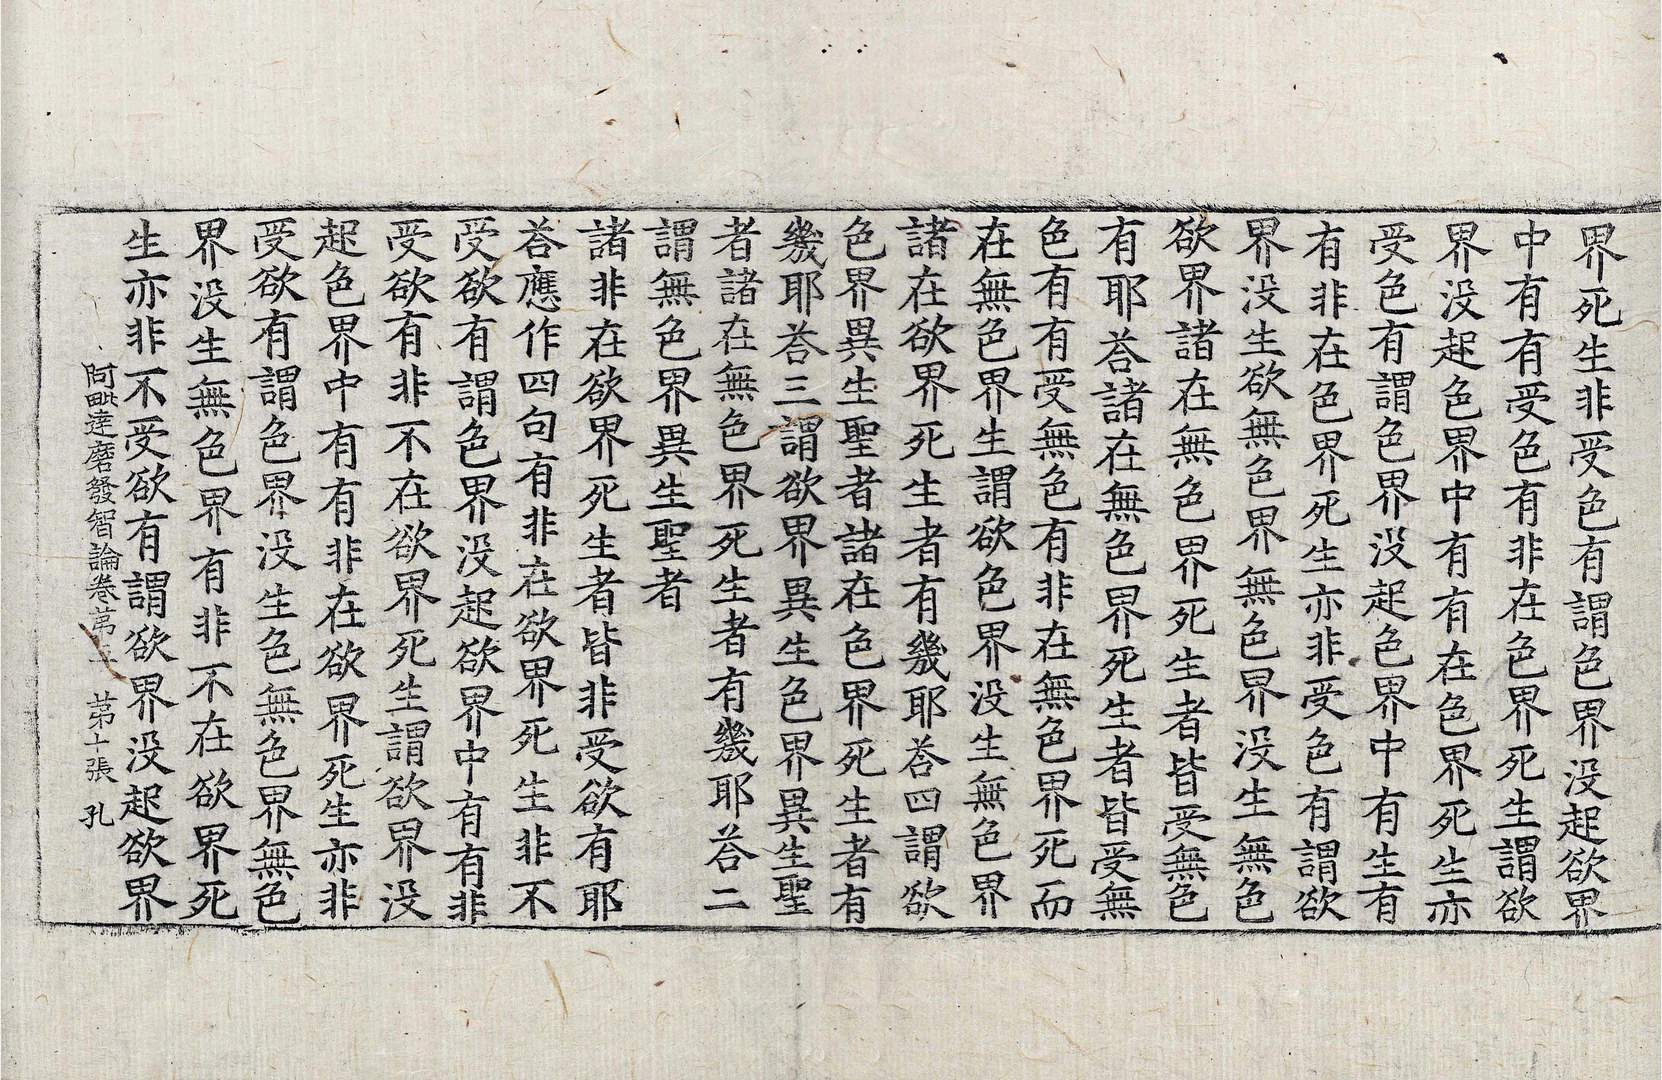 界死生非受色有謂色界没起欲界
中有有受色有非在色界死生謂欲
界没起色界中有有在色界死生亦
受色有謂色界没起色界中有生有
有非在色界死生亦非受色有謂欲
界没生欲無色界無色界没生無色
欲界諸在無色界死生者皆受無色
有耶荅諸在無色界死生者皆受無
色有有受無色有非在無色界死而
在無色界生謂欲色界没生無色界
諸在欲界死生者有幾耶荅四謂欲
色界異生聖者諸在色界死生者有
幾耶荅三謂欲界異生色界異生聖
者諸在無色界死生者有幾耶荅二
謂無色界異生聖者
諸非在欲界死生者皆非受欲有耶
荅應作四句有非在欲界死生非不
受欲有謂色界没起欲界中有有非
受欲有非不在欲界死生謂欲界没
起色界中有有非在欲界死生亦非
受欲有謂色界没生色無色界無色
界没生無色界有非不在欲界死
生亦非不受欲有謂欲界没起欲界
阿毗達磨發智論卷苐五 苐十張 孔